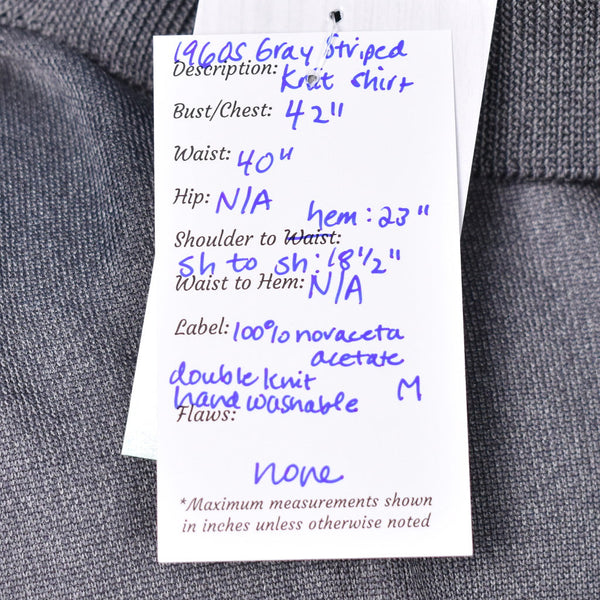 1960s Gray Striped
Description: Knit shirt
Bust/Chest: 42"
Waist: 40"
Hip: N/A
hem: 23"
Shoulder to Waist:
sh to sh: 18 1/2"
Waist to Hem: N/A
Label: 100% novaceta
acetate
double knit
hand washable M
Flaws:
none
*Maximum measurements shown
in inches unless otherwise noted